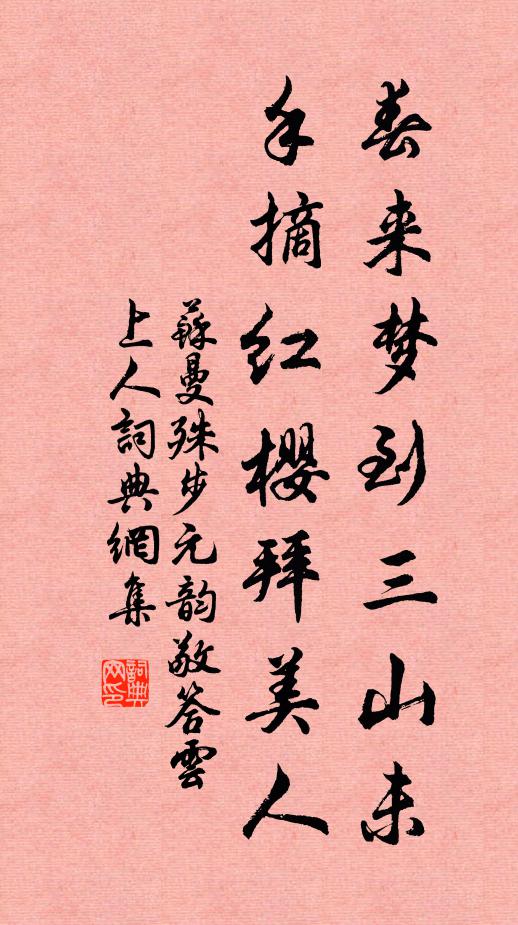 春来梦到三山未
手摘红樱拜美人
蘇曼殊步元韵敬答雲
上人詞典網集
詞典
网印